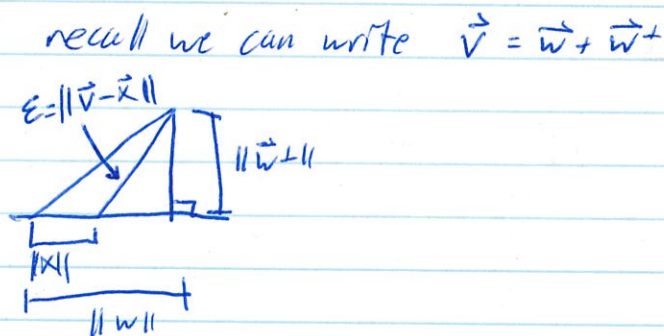 recall we can write v⃗ = w⃗ + w⃗⊥
ε=||v⃗-x⃗||
||w⃗⊥||
||x||
||w||